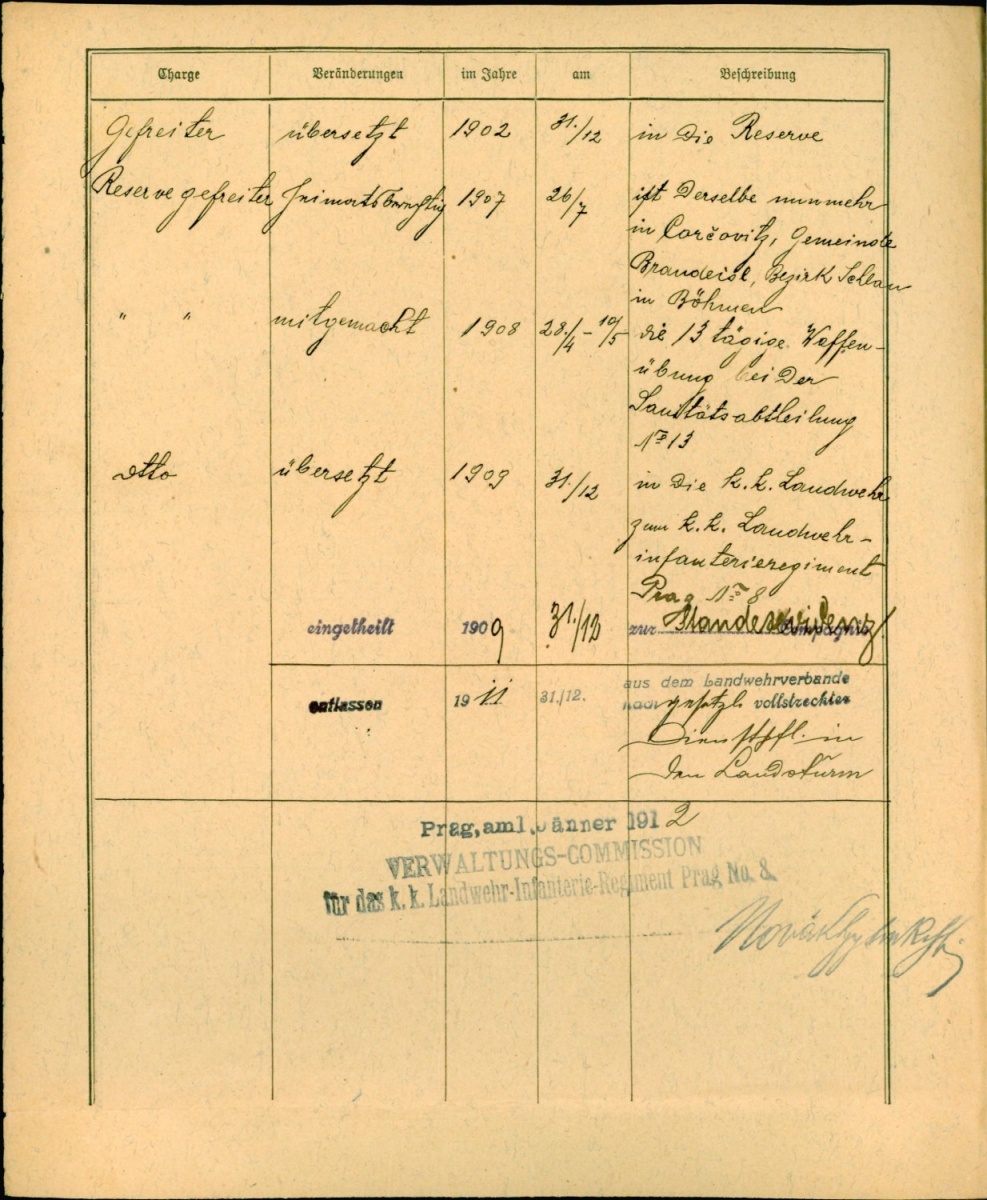 Charge Veränderungen im Jahre am Beschreibung
Gefreiter übersetzt 1902 31./12 in die Reserve
Reservegefreiter Heimatsberechtig 1907 26/7 ist Derselbe nunmehr
in Corčovitz, Gemeinde
Brandeisl, Bezirk Schlan
in Böhmen
" " mitgemacht 1908 28./4 - 10/5 die 13 tägige Waffen-
übung bei der
Sanitätsabtheilung
No 13
dtto übersetzt 1909 31./12 in die k.k. Landwehr
zum k.k. Landwehr-
infanterieregiment
Prag No 8
eingetheilt 1909 31./12 zur Standesevidenz
entlassen 1911 31./12. aus dem Landwehrverbande
nach gesetzl. vollstreckter
Dienstpfl. in
den Landsturm
Prag, am 1. Jänner 1912
VERWALTUNGS-COMMISSION
für das k. k. Landwehr-Infanterie-Regiment Prag No. 8.